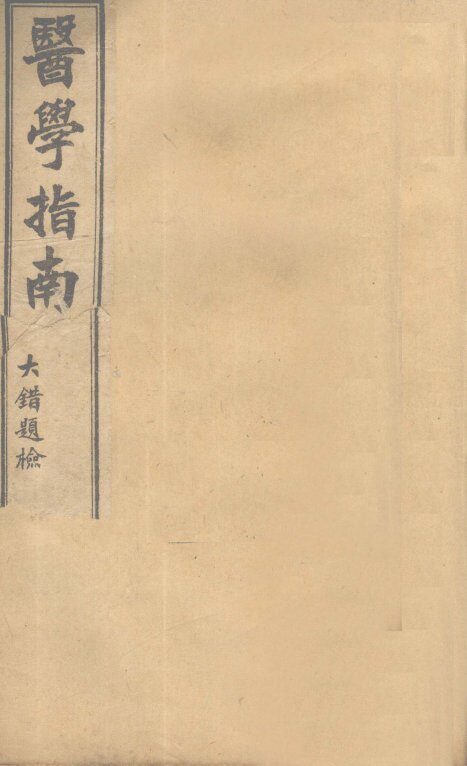 醫學指南
大錯題檢